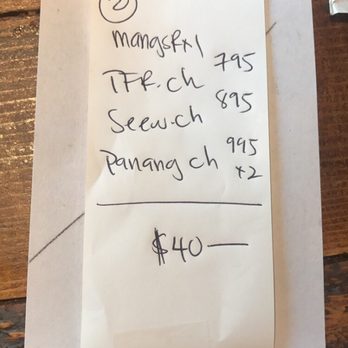 2
mangsRx1
TFR.ch 795
Seew.ch 895
Panang ch 995
x2
$40—